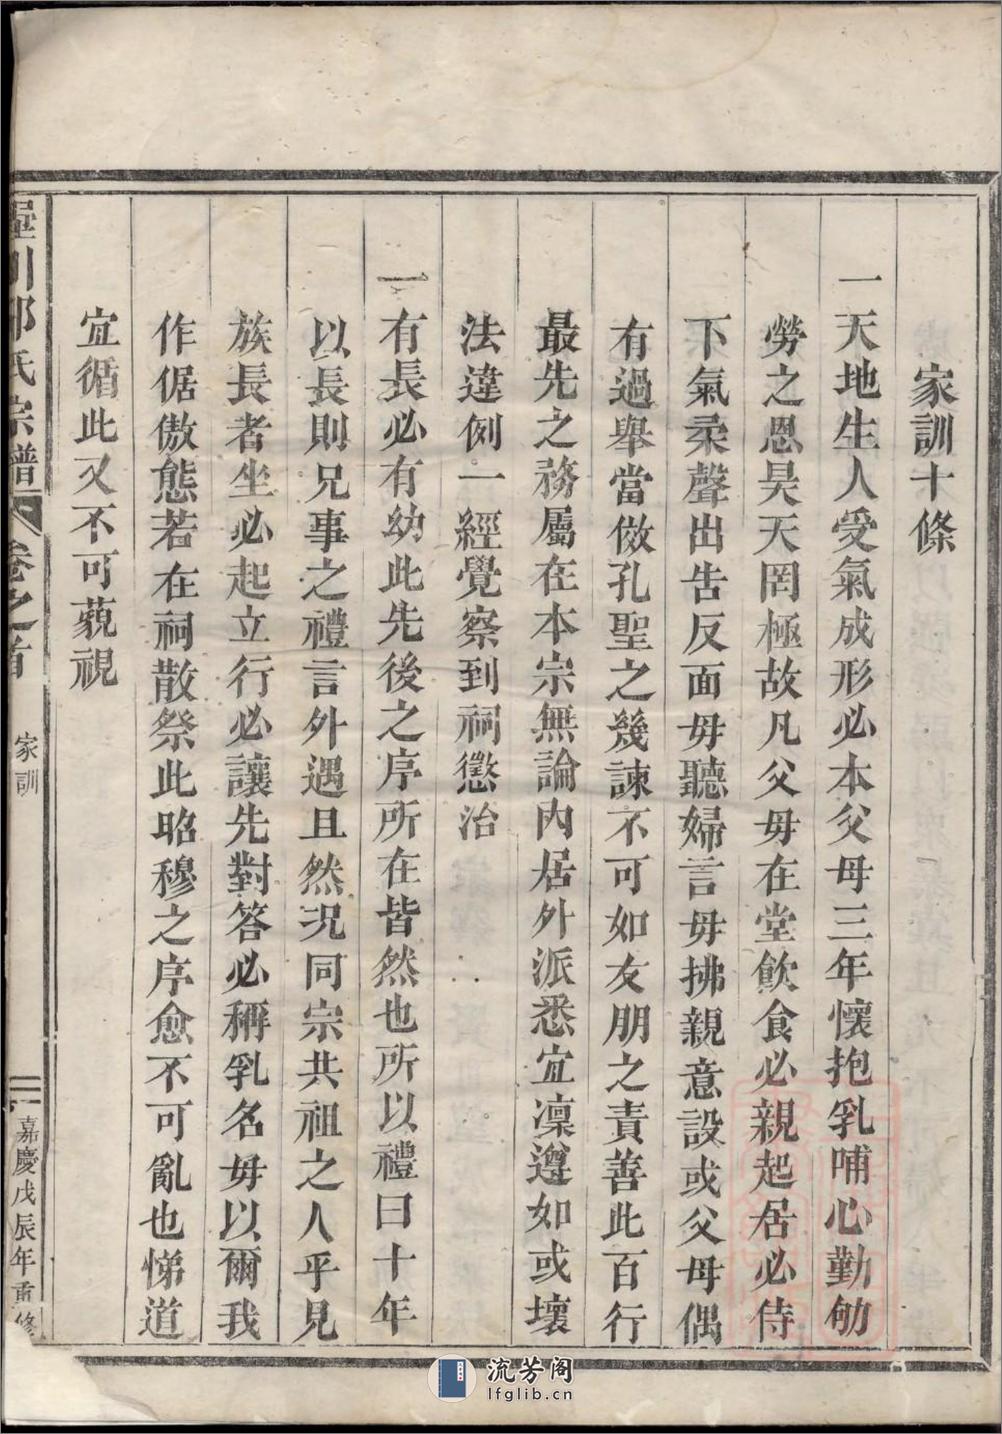 家訓十條
一天地生人受氣成形必本父母三年懷抱乳哺心勤劬
勞之恩昊天罔極故凡父毋在堂飲食必親起居必侍
下氣柔聲出告反面毋聽婦言毋拂親意設或父母偶
有過舉當倣孔聖之幾諫不可如友朋之責善此百行
最先之務屬在本宗無論内居外派悉宜凜遵如或壞
法違例一經覺察到祠懲治
一有長必有幼此先後之序所在皆然也所以禮曰十年
以長則兄事之禮言外遇且然况同宗共祖之人乎見
族長者坐必起立行必讓先對答必稱乳名毋以爾我
作倨傲態若在祠散祭此昭穆之序愈不可亂也悌道
宜循此又不可藐視
川 氏宗譜 卷之首 家訓 二 嘉慶戊辰年重修
流芳阁
lfglib.cn